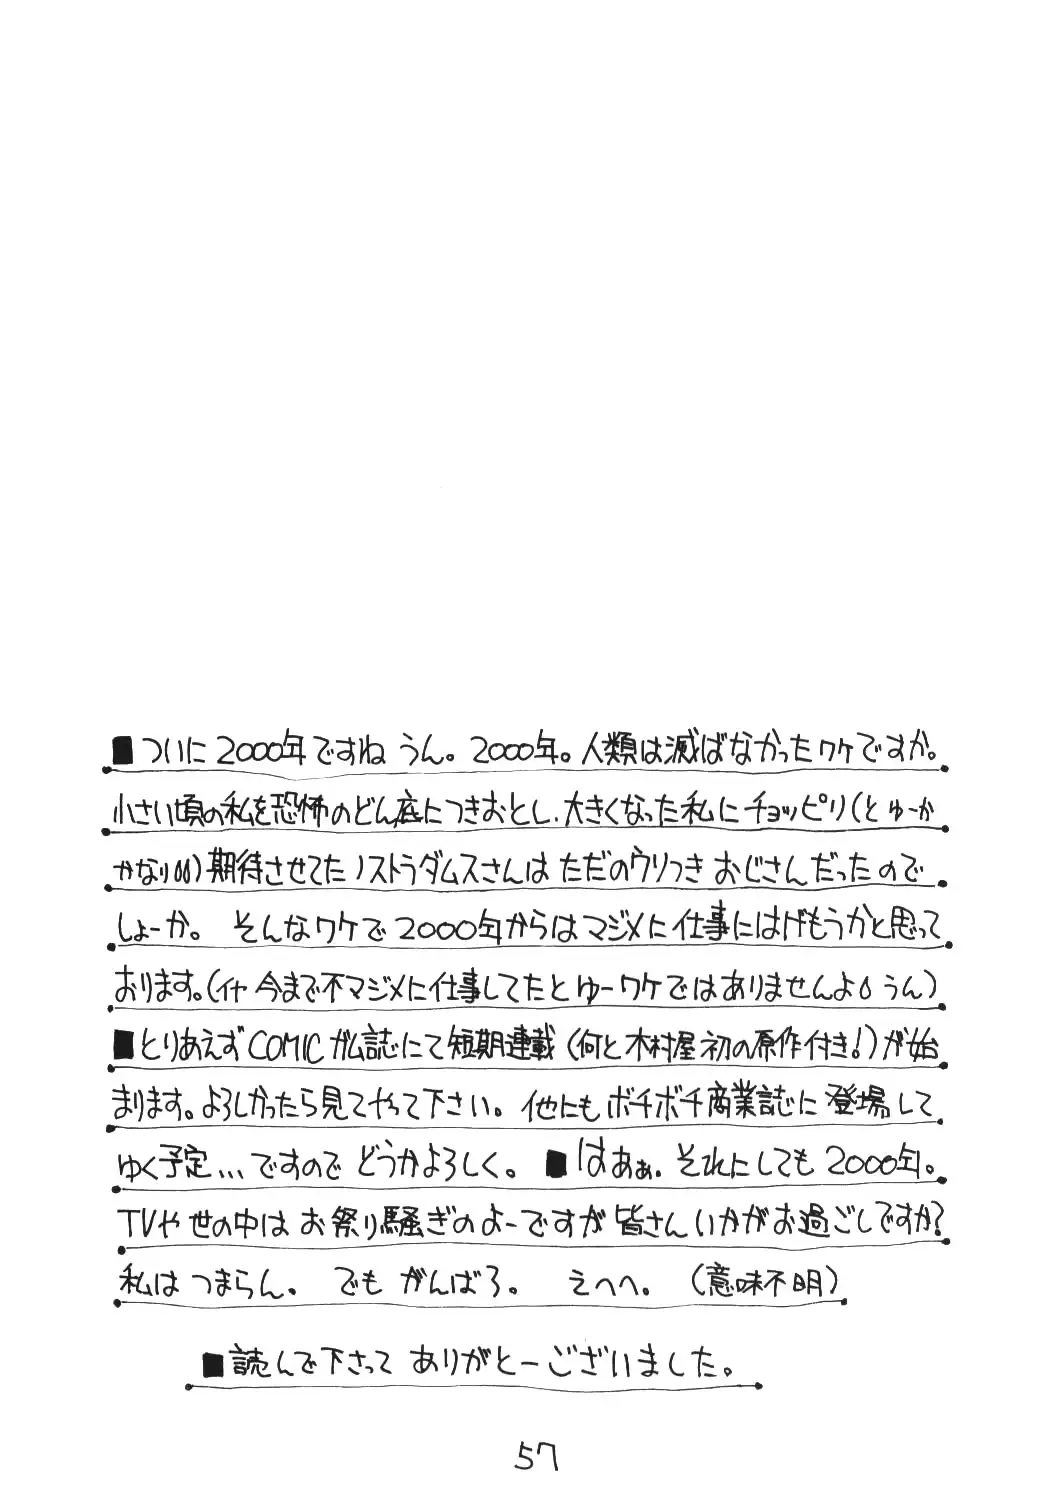 ■ついに2000年ですね うん。2000年。人類は滅ばなかったワケですか。
小さい頃の私を恐怖のどん底につきおとし、大きくなった私にチョッピリ(とゆーか
かなり)期待させてたノストラダムスさんは ただのウソつき おじさんだったので
しょーか。 そんなワケで2000年からはマジメに仕事にはげもうかと思って
おります。(イヤ 今まで不マジメに仕事してたとゆーワケではありませんよ うん)
■とりあえずCOMICガム誌にて短期連載(何と木村屋初の原作付き!)が始
まります。よろしかったら見てやって下さい。他にもボチボチ商業誌に登場して
ゆく予定...ですので どうかよろしく。 ■はあぁ. それにしても2000年。
TVや世の中は お祭り騒ぎのよーですが皆さんいかがお過ごしですか?
私は つまらん。 でも がんばろ。 えへへ。 (意味不明)
■読んで下さって ありがとーございました。
57